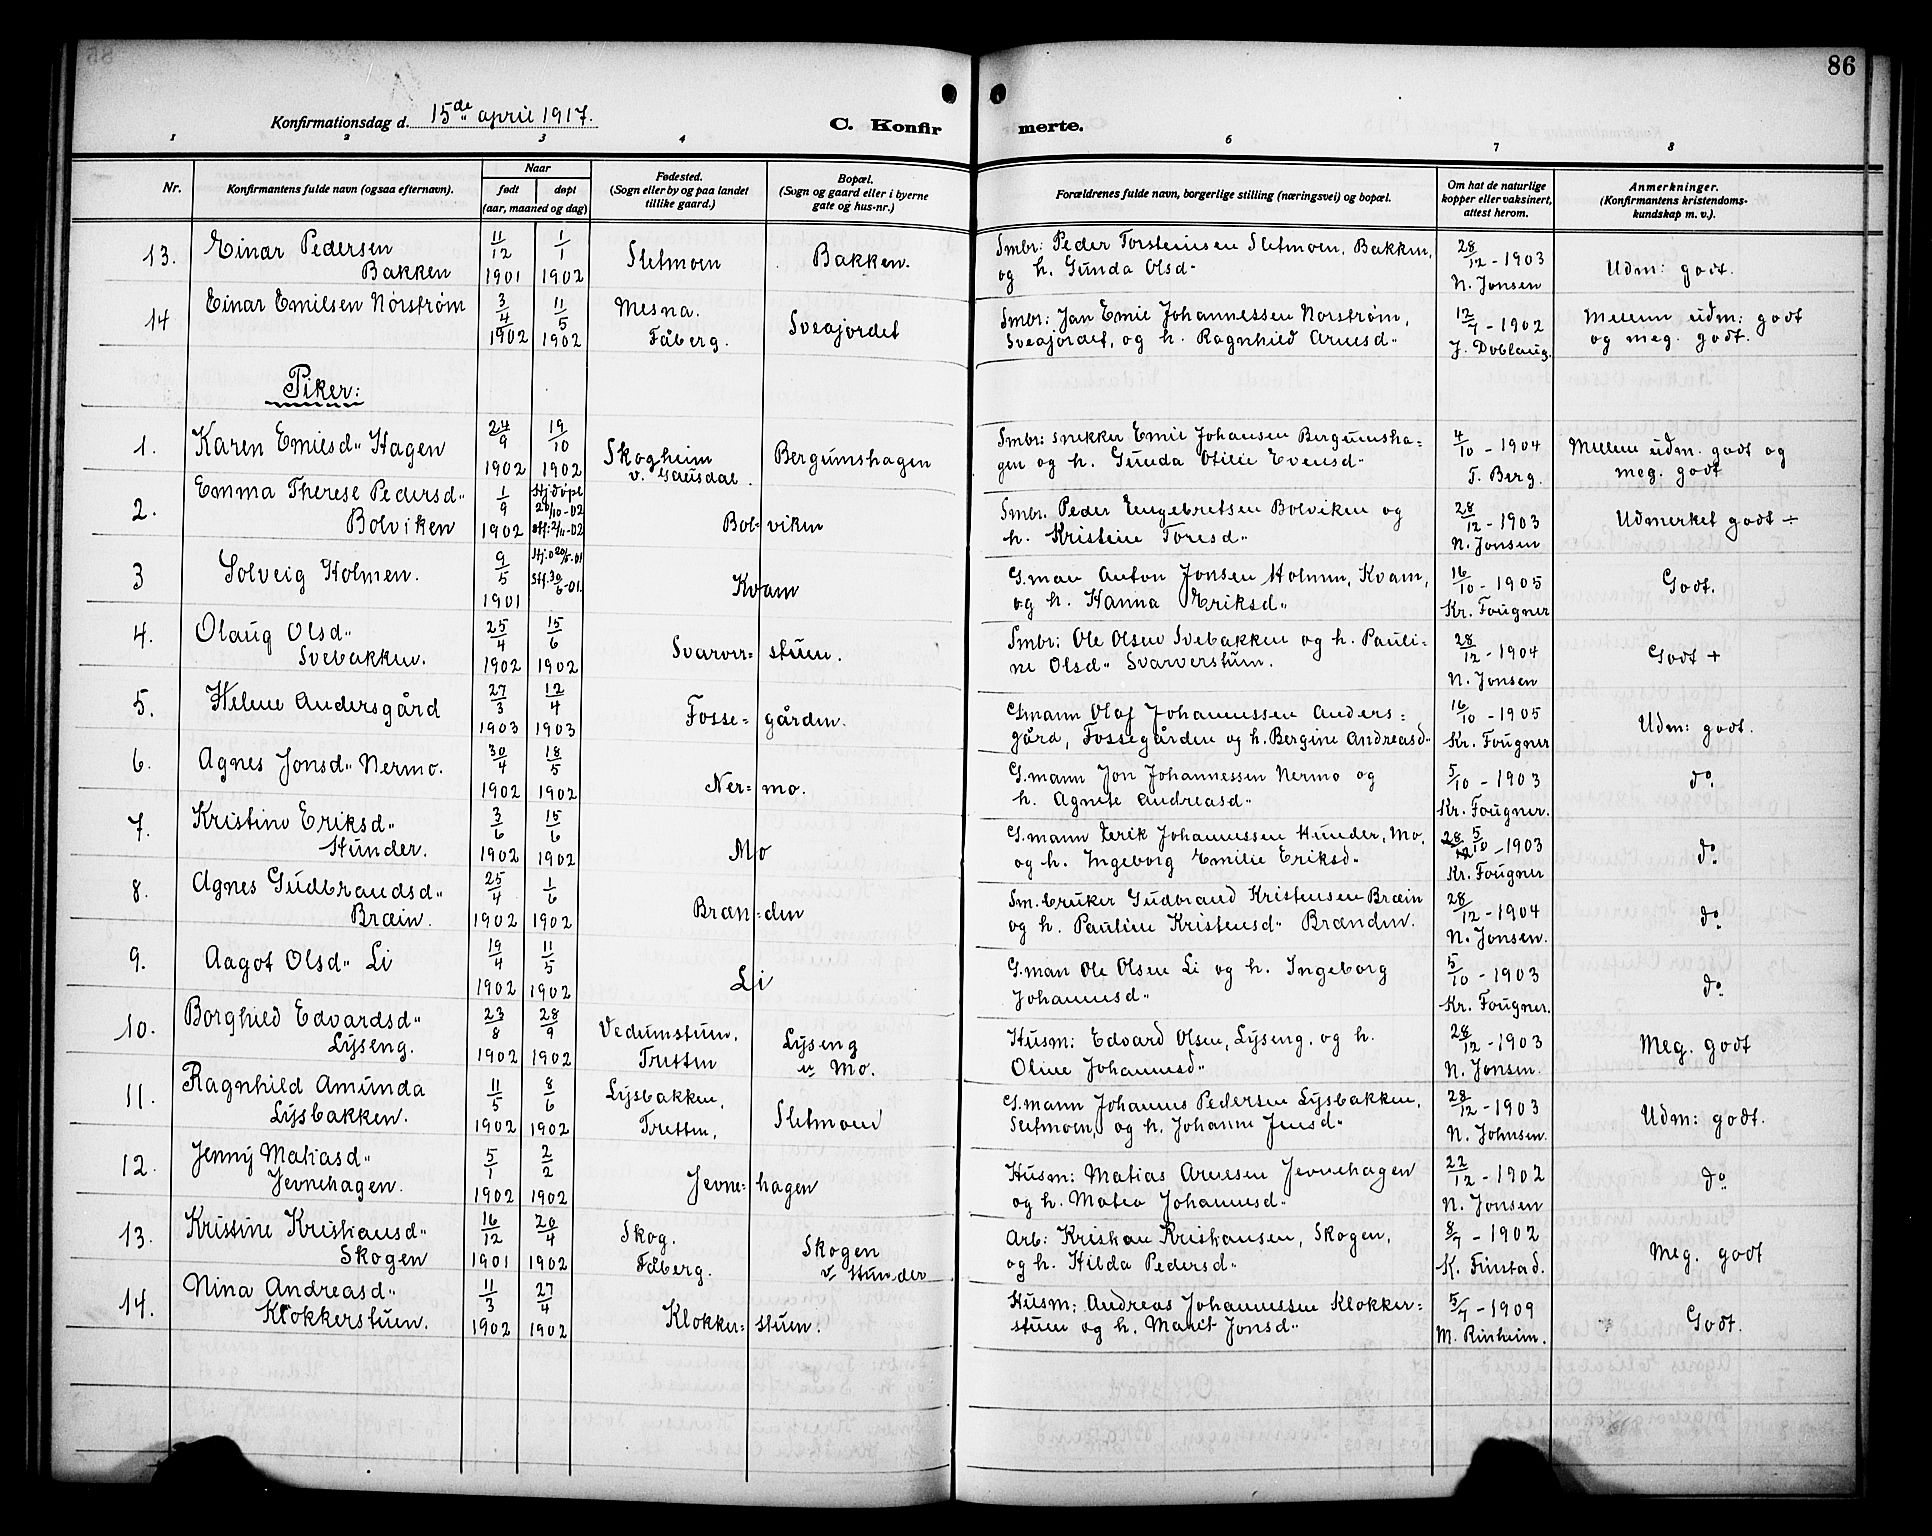 86
Konfirmationsdag d. 15de april 1917.
C. Konfirmerte.
1 2 3 4 6 7 8
Nr.
Konfirmantens fulde navn (ogsaa efternavn).
Naar
født
døpt
(aar, maaned og dag)
Fødested.
(Sogn eller by og paa landet
tillike gaard.)
Bopæl.
(Sogn og gaard eller i byerne
gate og hus-nr.)
Forældrenes fulde navn, borgerlige stilling (næringsvei) og bopæl.
Om hat de naturlige
kopper eller vaksinert,
attest herom.
Anmerkninger.
(Konfirmantens kristendoms-
kundskap m. v.).
13. Einar Pedersen
Bakken
11/12 1901
1/1 1902
Sletmoen
Bakken.
Smbr: Peder Torsteinsen Sletmoen, Bakken,
og h. Gunda Olsd"
28/12 - 1903
N. Jonsen
Udm: godt.
14 Einar Emilsen Norstrøm
3/4 1902
11/5 1902
Mesna.
Fåberg.
Sveajordet
Smbr: Jan Emil Johannessen Norstrøm,
Sveajordet, og h. Ragnhild Arnesd"
12/7 - 1902
J. Doblaug.
Mellem udm: godt
og meg. godt.
Piker:
1. Karen Emilsd" Hagen
24/9 1902
19/10 1902
Skogheim
v. Gausdal.
Bergumshagen
Smbr: snekker Emil Johansen Bergumsha=
gen og h. Gunda Otilie Evensd"
4/10 - 1904
T. Berg.
Mellem udm. godt og
meg. godt
2. Emma Therese Pedersd"
Bolviken
1/9 1902
Hj.døpt
Bol=viken
Smbr. Peder Engebretsen Bolviken og
h. Kristine Toresd"
28/12 - 1903
N. Jonsen
Udmerket godt ÷
3 Solveig Holmen.
9/5 1901
Kvam
G.man Anton Jonsen Holmen, Kvam,
og h. Hanna Eriksd"
16/10 - 1905
Kr. Fougner
Godt.
4. Olaug Olsd"
Svebakken.
25/4 1902
15/6 1902
Svarver=stuen.
Smbr: Ole Olsen Svebakken og h. Pauli=
ne Olsd" Svarverstuen.
28/12 - 1904
N. Jonsen
Godt +
5. Helene Andersgård
27/3 1903
12/4 1903
Fosse=gården.
Gmann Olaf Johannessen Anders=
gård, Fossegården og h. Bergine Andreasd"
16/10 - 1905
Kr. Fougner
Udm: godt.
6. Agnes Jonsd" Nermo.
30/4 1902
18/5 1902
Ner=mo.
G.mann Jon Johannessen Nermo og
h. Agnete Andreasd"
5/10 - 1903
Kr. Fougner.
do
7. Kristine Eriksd"
Hunder.
3/6 1902
15/6 1902
Mo
G.mann Erik Johannessen Hunder, Mo,
og h. Ingeborg Emilie Eriksd"
5/10 - 1903
Kr. Fougner
do
8. Agnes Gudbrandsd"
Bræin.
25/4 1902
1/6 1902
Bræn=den
Sm.bruker Gudbrand Kristensen Bræin
og h. Pauline Kristensd" Brænden.
28/12 - 1904
N. Jonsen.
do
9. Aagot Olsd" Li
19/4 1902
11/5 1902
Li
G.man Ole Olsen Li og h. Ingeborg
Johannesd"
5/10 - 1903
Kr. Fougner.
do
10. Borghild Edvardsd"
Lyseng.
23/8 1902
28/9 1902
Vedumstuen.
Tretten
Lyseng
u Mo.
Husm: Edvard Olsen, Lyseng. og h.
Oline Johannesd"
28/12 - 1903
N. Jonsen.
Meg. godt
11. Ragnhild Amunda
Lysbakken.
11/5 1902
8/6 1902
Lysbakken,
Tretten,
Sletmoen
G.mann Johannes Pedersen Lysbakken,
Sletmoen, og h. Johanne Jensd"
28/12 - 1903
N. Johnsen.
Udm: godt.
12. Jenny Matiasd"
Jevnehagen.
5/1 1902
2/2 1902
Jevne=hagen
Husm: Matias Arnesen Jevnehagen
og h. Matea Johannesd"
22/12 - 1902
N. Jonsen
do
13. Kristine Kristiansd"
Skogen
16/12 1901
20/4 1902
Skog.
Fåberg.
Skogen
v Hunder
Arb: Kristian Kristiansen, Skogen,
og h. Hilda Pedersd"
8/7 - 1902
K. Finstad.
Meg. godt
14. Nina Andreasd"
Klokkerstuen.
11/3 1902
27/4 1902
Klokker=stuen.
Husm: Andreas Johannessen Klokker=
stuen og h. Marit Jonsd"
5/7 - 1909
M. Rinheim.
Godt.